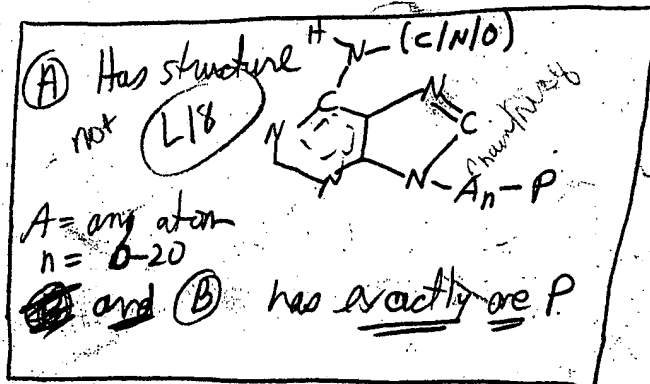 (A) Has structure
H
N-(C/N/O)
not L18
C
N
N
C
N
N-An-P
chain/ring
A = any atom
n = 0-20
and (B) has exactly one P.